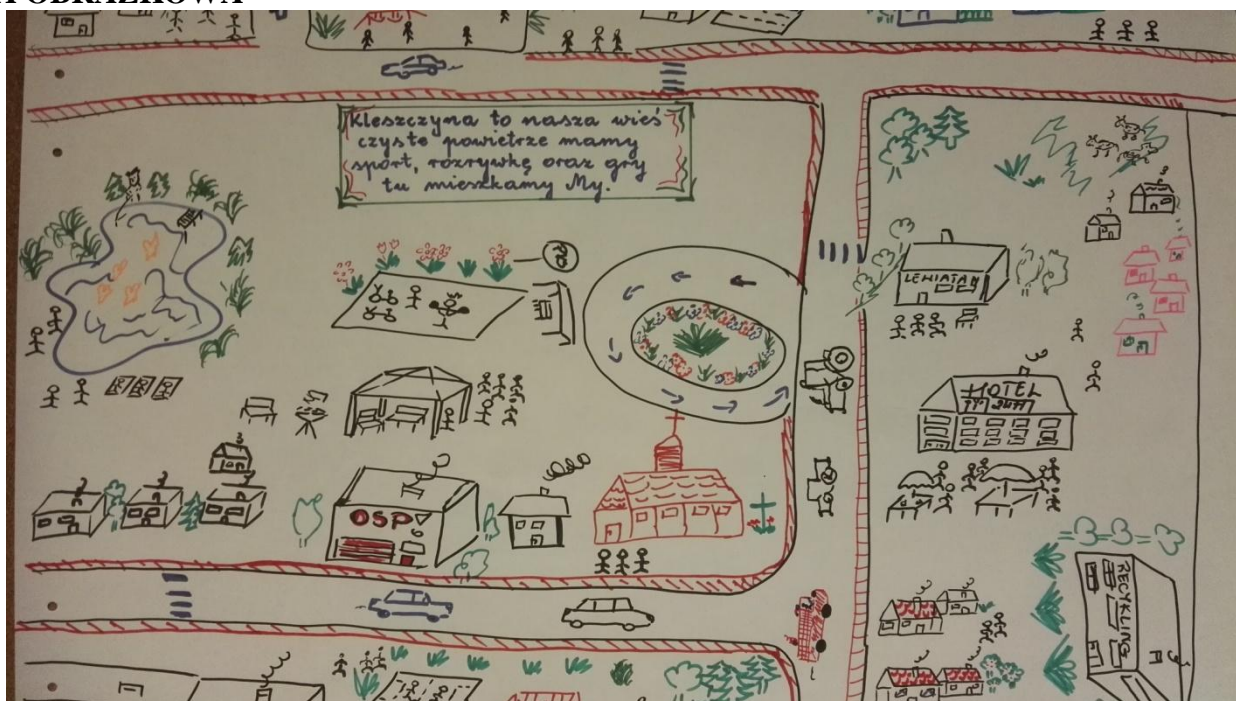 Kleszczyna to nasza wieś
czyste powietrze mamy
sport, rozrywkę oraz gry
tu mieszkamy My.
LEWIATAN
HOTEL
OSP
RECYKLING